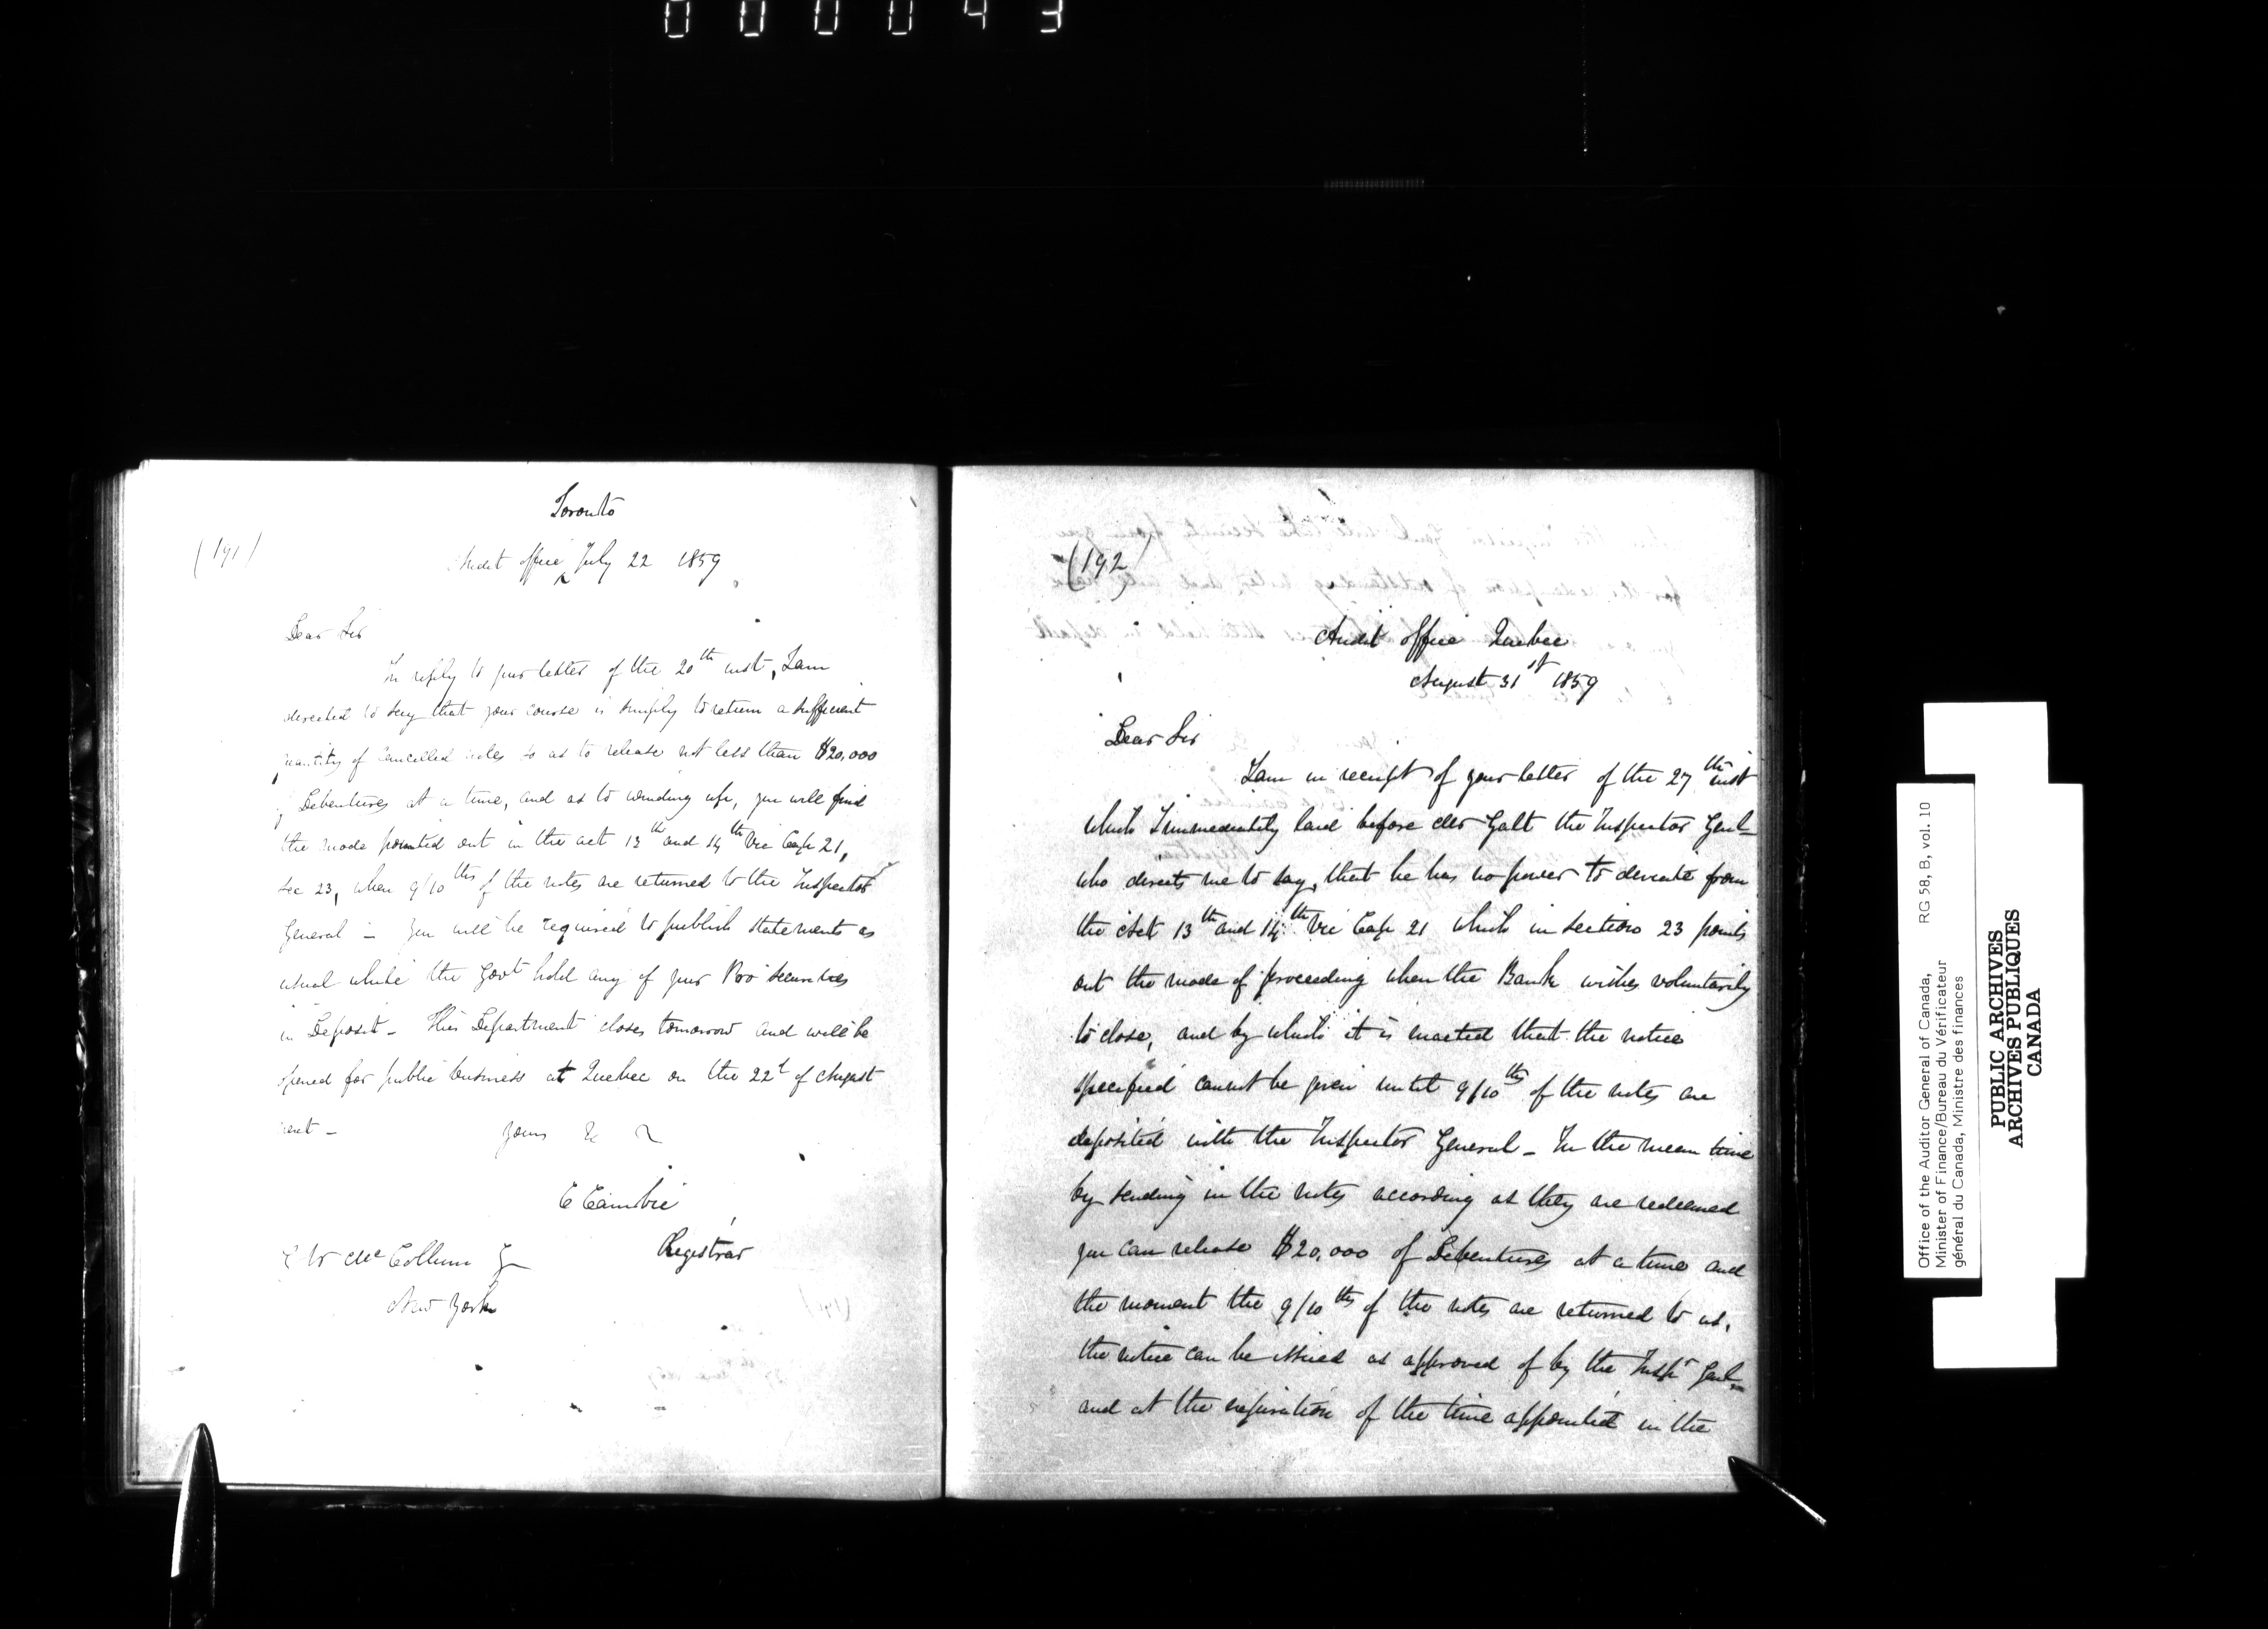 000043
Toronto
(191)
Audit office, July 22 1859
Dear Sir
In reply to your letter of the 20th inst, I am
directed to say that your course is simply to return a sufficient
quantity of Cancelled notes so as to release not less than $20,000
of Debentures at a time, and as to winding up, you will find
the mode pointed out in the act 13th and 14th Vic Cap 21,
Sec 23, when 9/10ths of the notes are returned to the Inspector
General - you will be required to publish statements as
usual while the Govt hold any of your Pro Securities
in Deposit - This Department closes tomorrow and will be
opened for public business at Quebec on the 22d of August
next -
Yours &c
C Cambie
Registrar
W McCollum
New York
(192)
Audit office Quebec
August 31st 1859
Dear Sir
I am in receipt of your letter of the 27th inst
which I immediately laid before Mr Galt the Inspector Genl
who directs me to say, that he has no power to deviate from
the Act 13th and 14th Vic Cap 21 which in section 23 points
out the mode of proceeding when the Bank wishes voluntarily
to close, and by which it is enacted that the notice
specified cannot be given until 9/10ths of the notes are
deposited with the Inspector General - In the mean time
by sending in the notes according as they are redeemed
you can release $20,000 of Debentures at a time and
the moment the 9/10ths of the notes are returned to us,
the notice can be issued as approved of by the Inspr Genl
and at the expiration of the time appointed in the
Office of the Auditor General of Canada, RG 58, B, vol. 10
Minister of Finance/Bureau du Vérificateur
général du Canada, Ministre des finances
PUBLIC ARCHIVES
ARCHIVES PUBLIQUES
CANADA